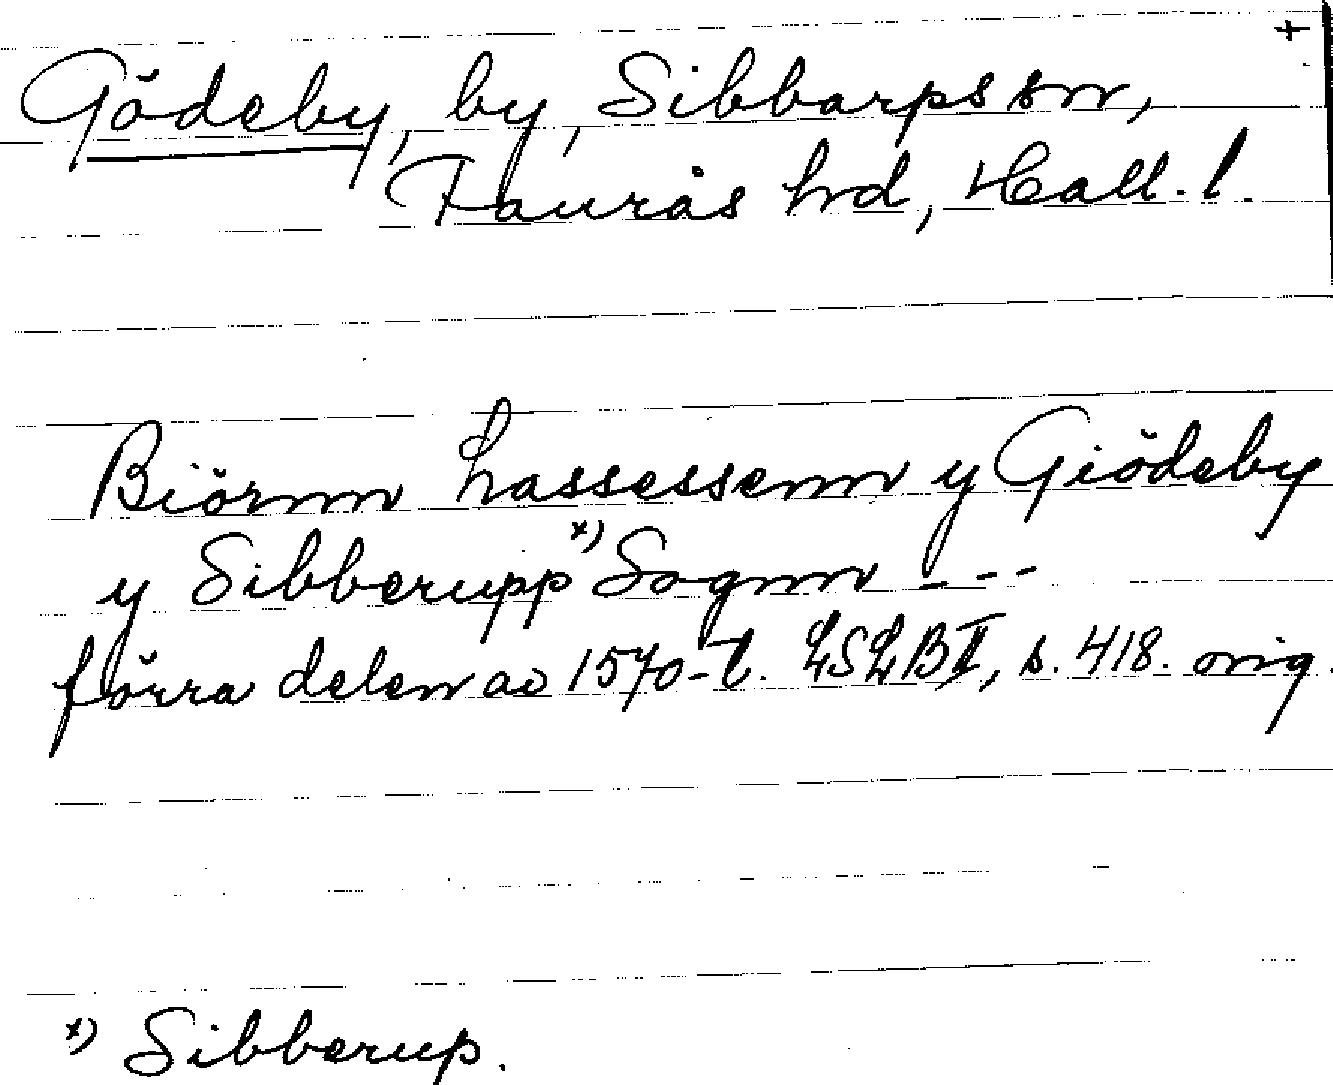 +
Gödeby, by, Sibbarps sn,
Faurås hd, Hall. l.
Biörnn Lassessenn y Giödeby
y Sibberupp x) Sognn ---
förra delen av 1570-t. LSLB II, s. 418. orig.
x) Sibberup.